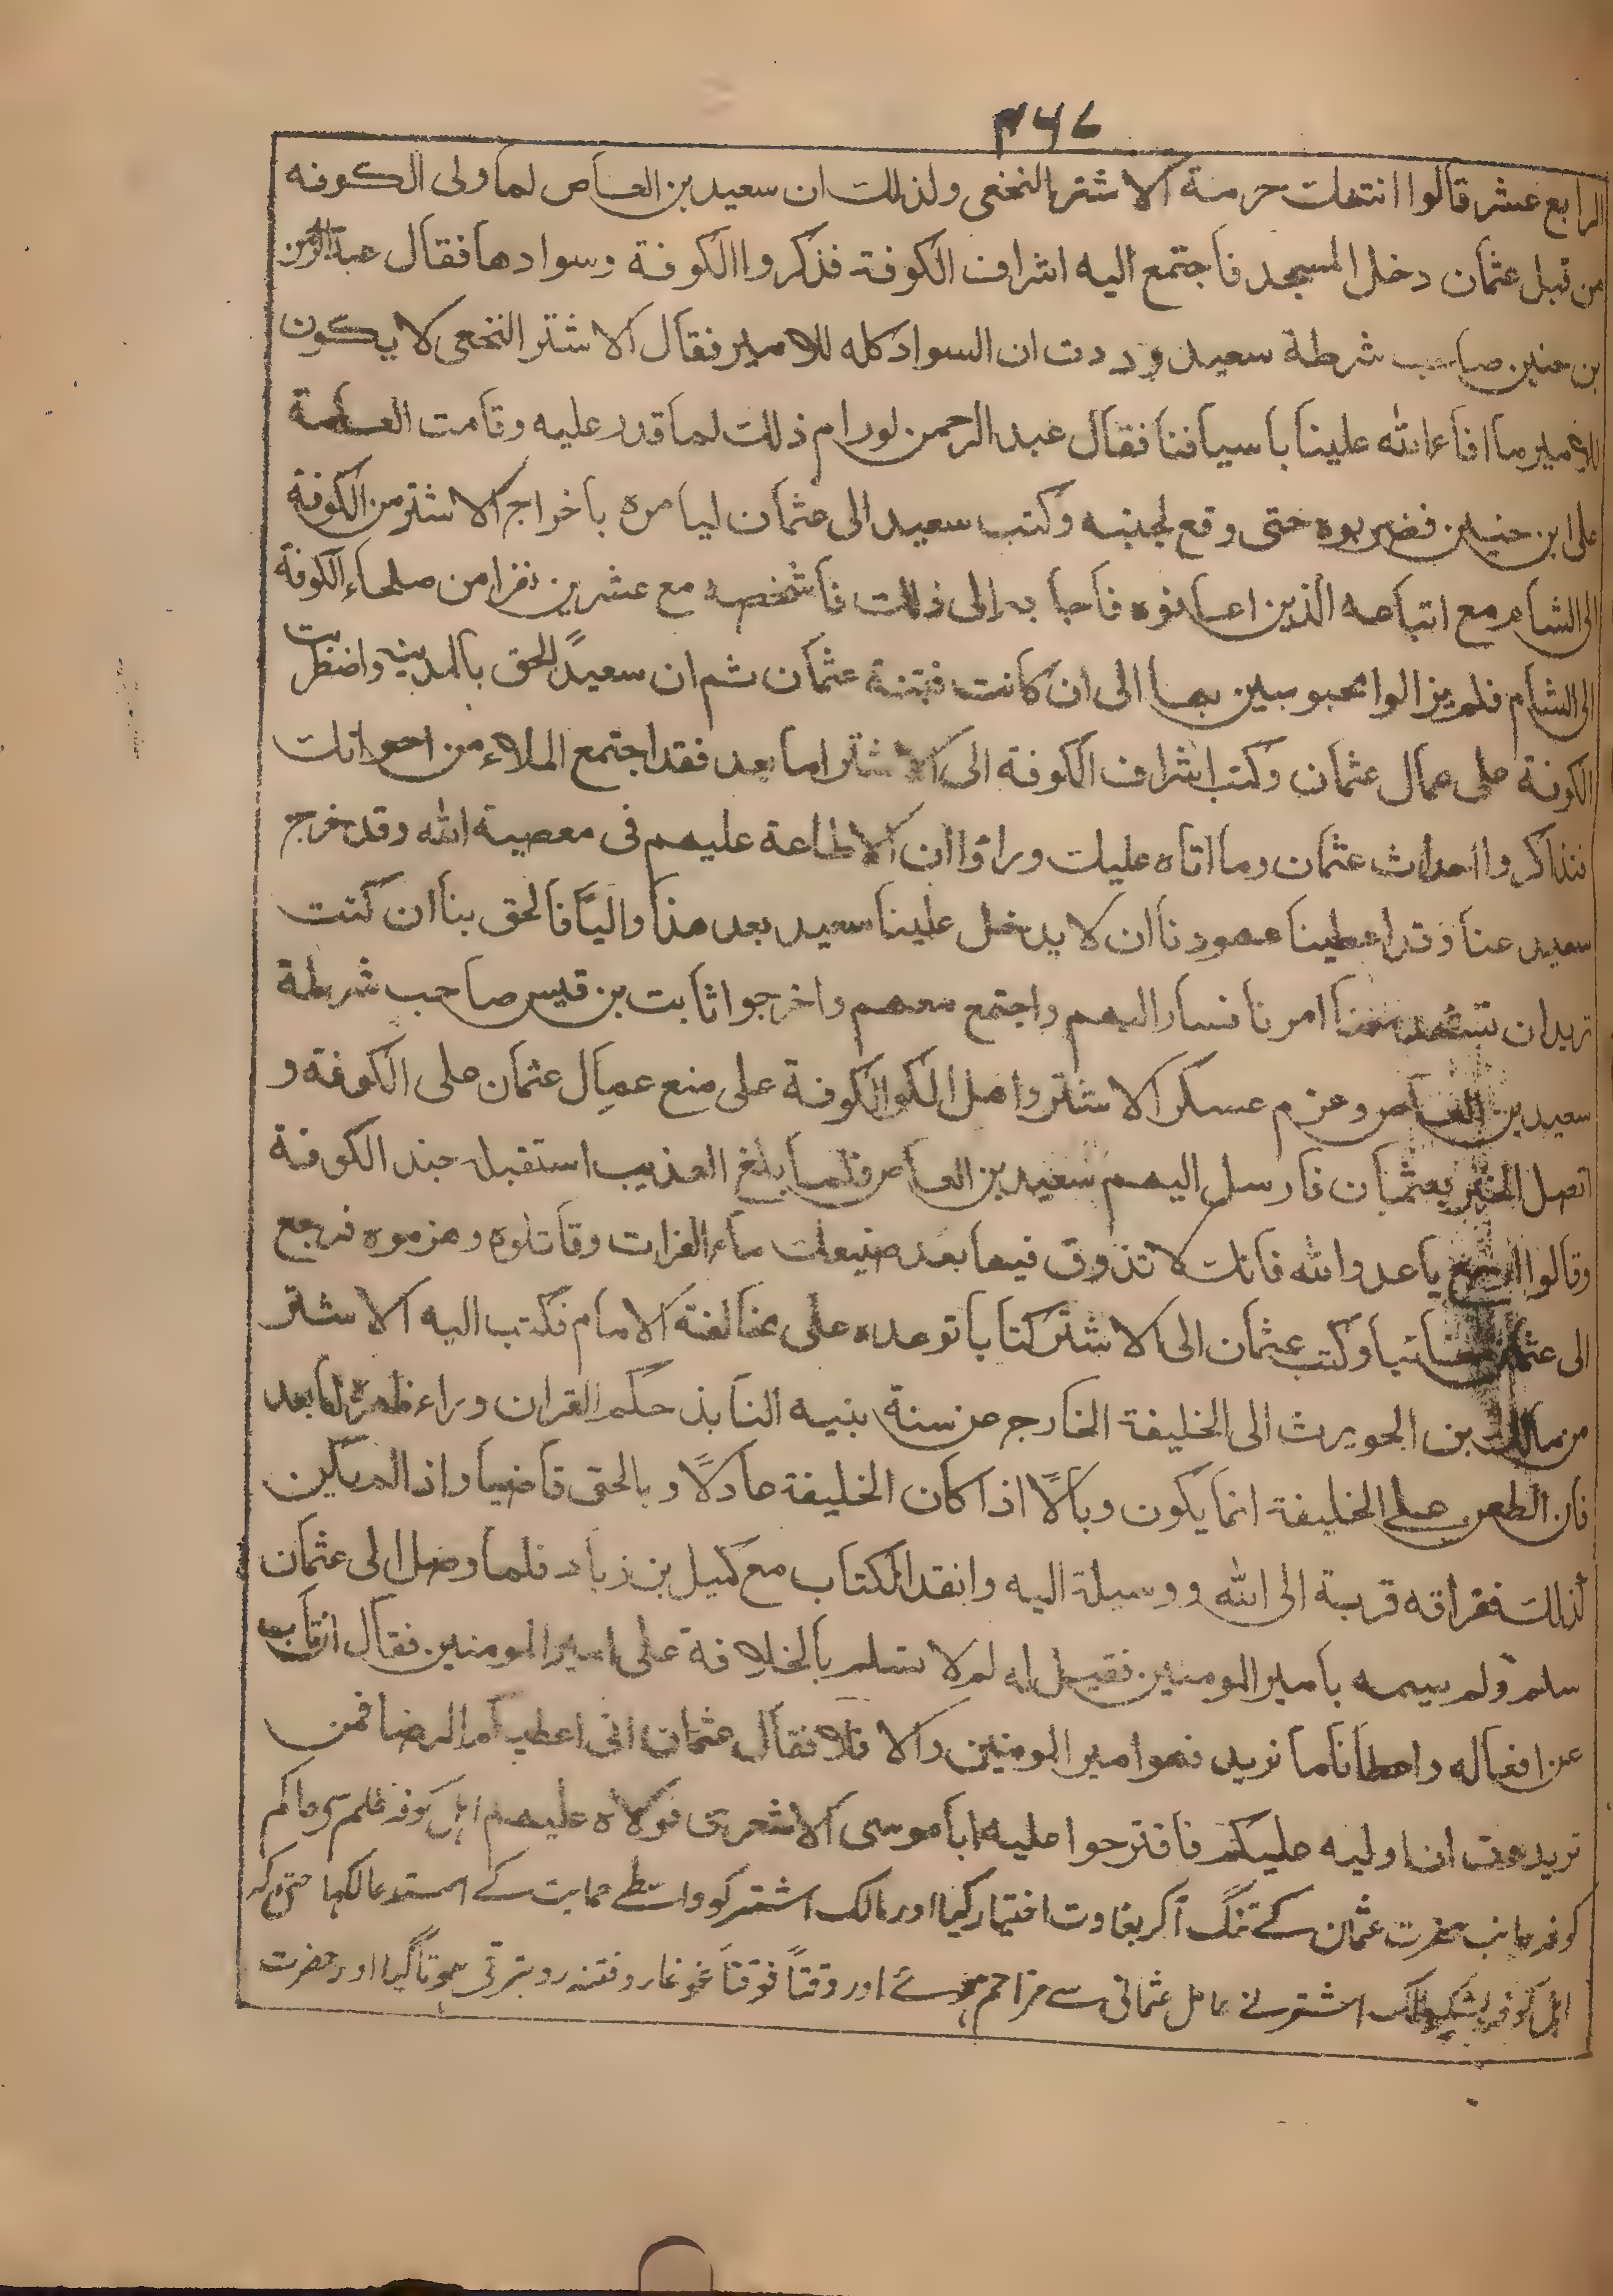 ۴۶۷
الرابع عشر قالوا انتهك حرمة الاشتر النخعى ولذلك ان سعيد بن العاص لما ولى الكوفه
من قبل عثمان دخل المسجد فاجتمع اليه اشراف الكوفة فذكروا الكوفة وسوادها فقال عبدالرحمن
بن حنين صاحب شرطة سعيد وددت ان السواد كله للامير فقال الاشتر النخعى لا يكون
للامير ما افاء الله علينا باسيافنا فقال عبد الرحمن لو رام ذلك لما قدر عليه وقامت العامة
على ابن حنين فضربوه حتى وقع لجنبه وكتب سعيد الى عثمان ليامره باخراج الاشتر من الكوفة
الى الشام مع اتباعه الذين اعانوه فاجابه الى ذلك فاشخصه مع عشرين نفرا من صلحاء الكوفة
الى الشام فلم يزالوا محبوسين بها الى ان كانت فتنة عثمان ثم ان سعيدً الحق بالمدينه واضطربت
الكوفة على عمال عثمان وكتب اشراف الكوفة الى الاشتر اما بعد فقد اجتمع الملاء من اخوانك
فتذاكروا احداث عثمان وما اتاه عليك وراؤا ان لا طاعة عليهم فى معصية الله وقد خرج
سعيد عنا وقد اعطينا عهودنا ان لا يدخل علينا سعيد بعد هذا واليًا فالحق بنا ان كنت
تريد ان تشهد معنا امرنا فسار اليهم واجتمع معهم واخرجوا ثابت بن قيس صاحب شرطة
سعيد بن العاص وعزم عسكر الاشتر واهل الكو الكوفة على منع عمال عثمان على الكوفة و
اتصل الخبر بعثمان فارسل اليهم سعيد بن العاص فلما بلغ العذيب استقبل جند الكوفة
وقالوا ارجع يا عدو الله فانك لا تذوق فيها بعد صنيعك ماء الفرات وقاتلوه وهزموه فرجع
الى عثمان خائبا وكتب عثمان الى الاشتر كتابا توعده على مخالفة الامام فكتب اليه الاشتر
من مالك بن الحويرث الى الخليفة الخارج عن سنة بنيه النابذ حكم القران وراء ظهره اما بعد
فان الطعن على الخليفة انما يكون وبالًا اذا كان الخليفة عادلًا وبالحق قاضيا واذا لم يكن
لذلك ففراقه قربة الى الله ووسيلة اليه وانفد الكتاب مع كميل بن زياد فلما وصل الى عثمان
سلم ولم يسمه بامير المومنين فقيل له لم لا تسلم بالخلافة على امير المومنين فقال ان تاب
عن افعاله واعطانا ما نريد فهو امير المومنين والا فلا فقال عثمان انى اعطيكم الرضا فمن
تريدون ان اوليه عليكم فاقترحوا عليه ابا موسى الاشعرى فولاه عليهم اہل کوفہ ظلم سے حاکم
کوفہ جانب حضرت عثمان کے تنگ آ کر بغاوت اختیار کیا اور مالک اشتر کو واسطے حمایت کے استدعا لکہا حتی کہ
اہل کوفہ مالک اشتر نے عامل عثمانی سے مزاحم ہوئے اور وقتاً فوقتاً غوغا اور فتنہ روبترقی ہوتا گیا اور حضرت